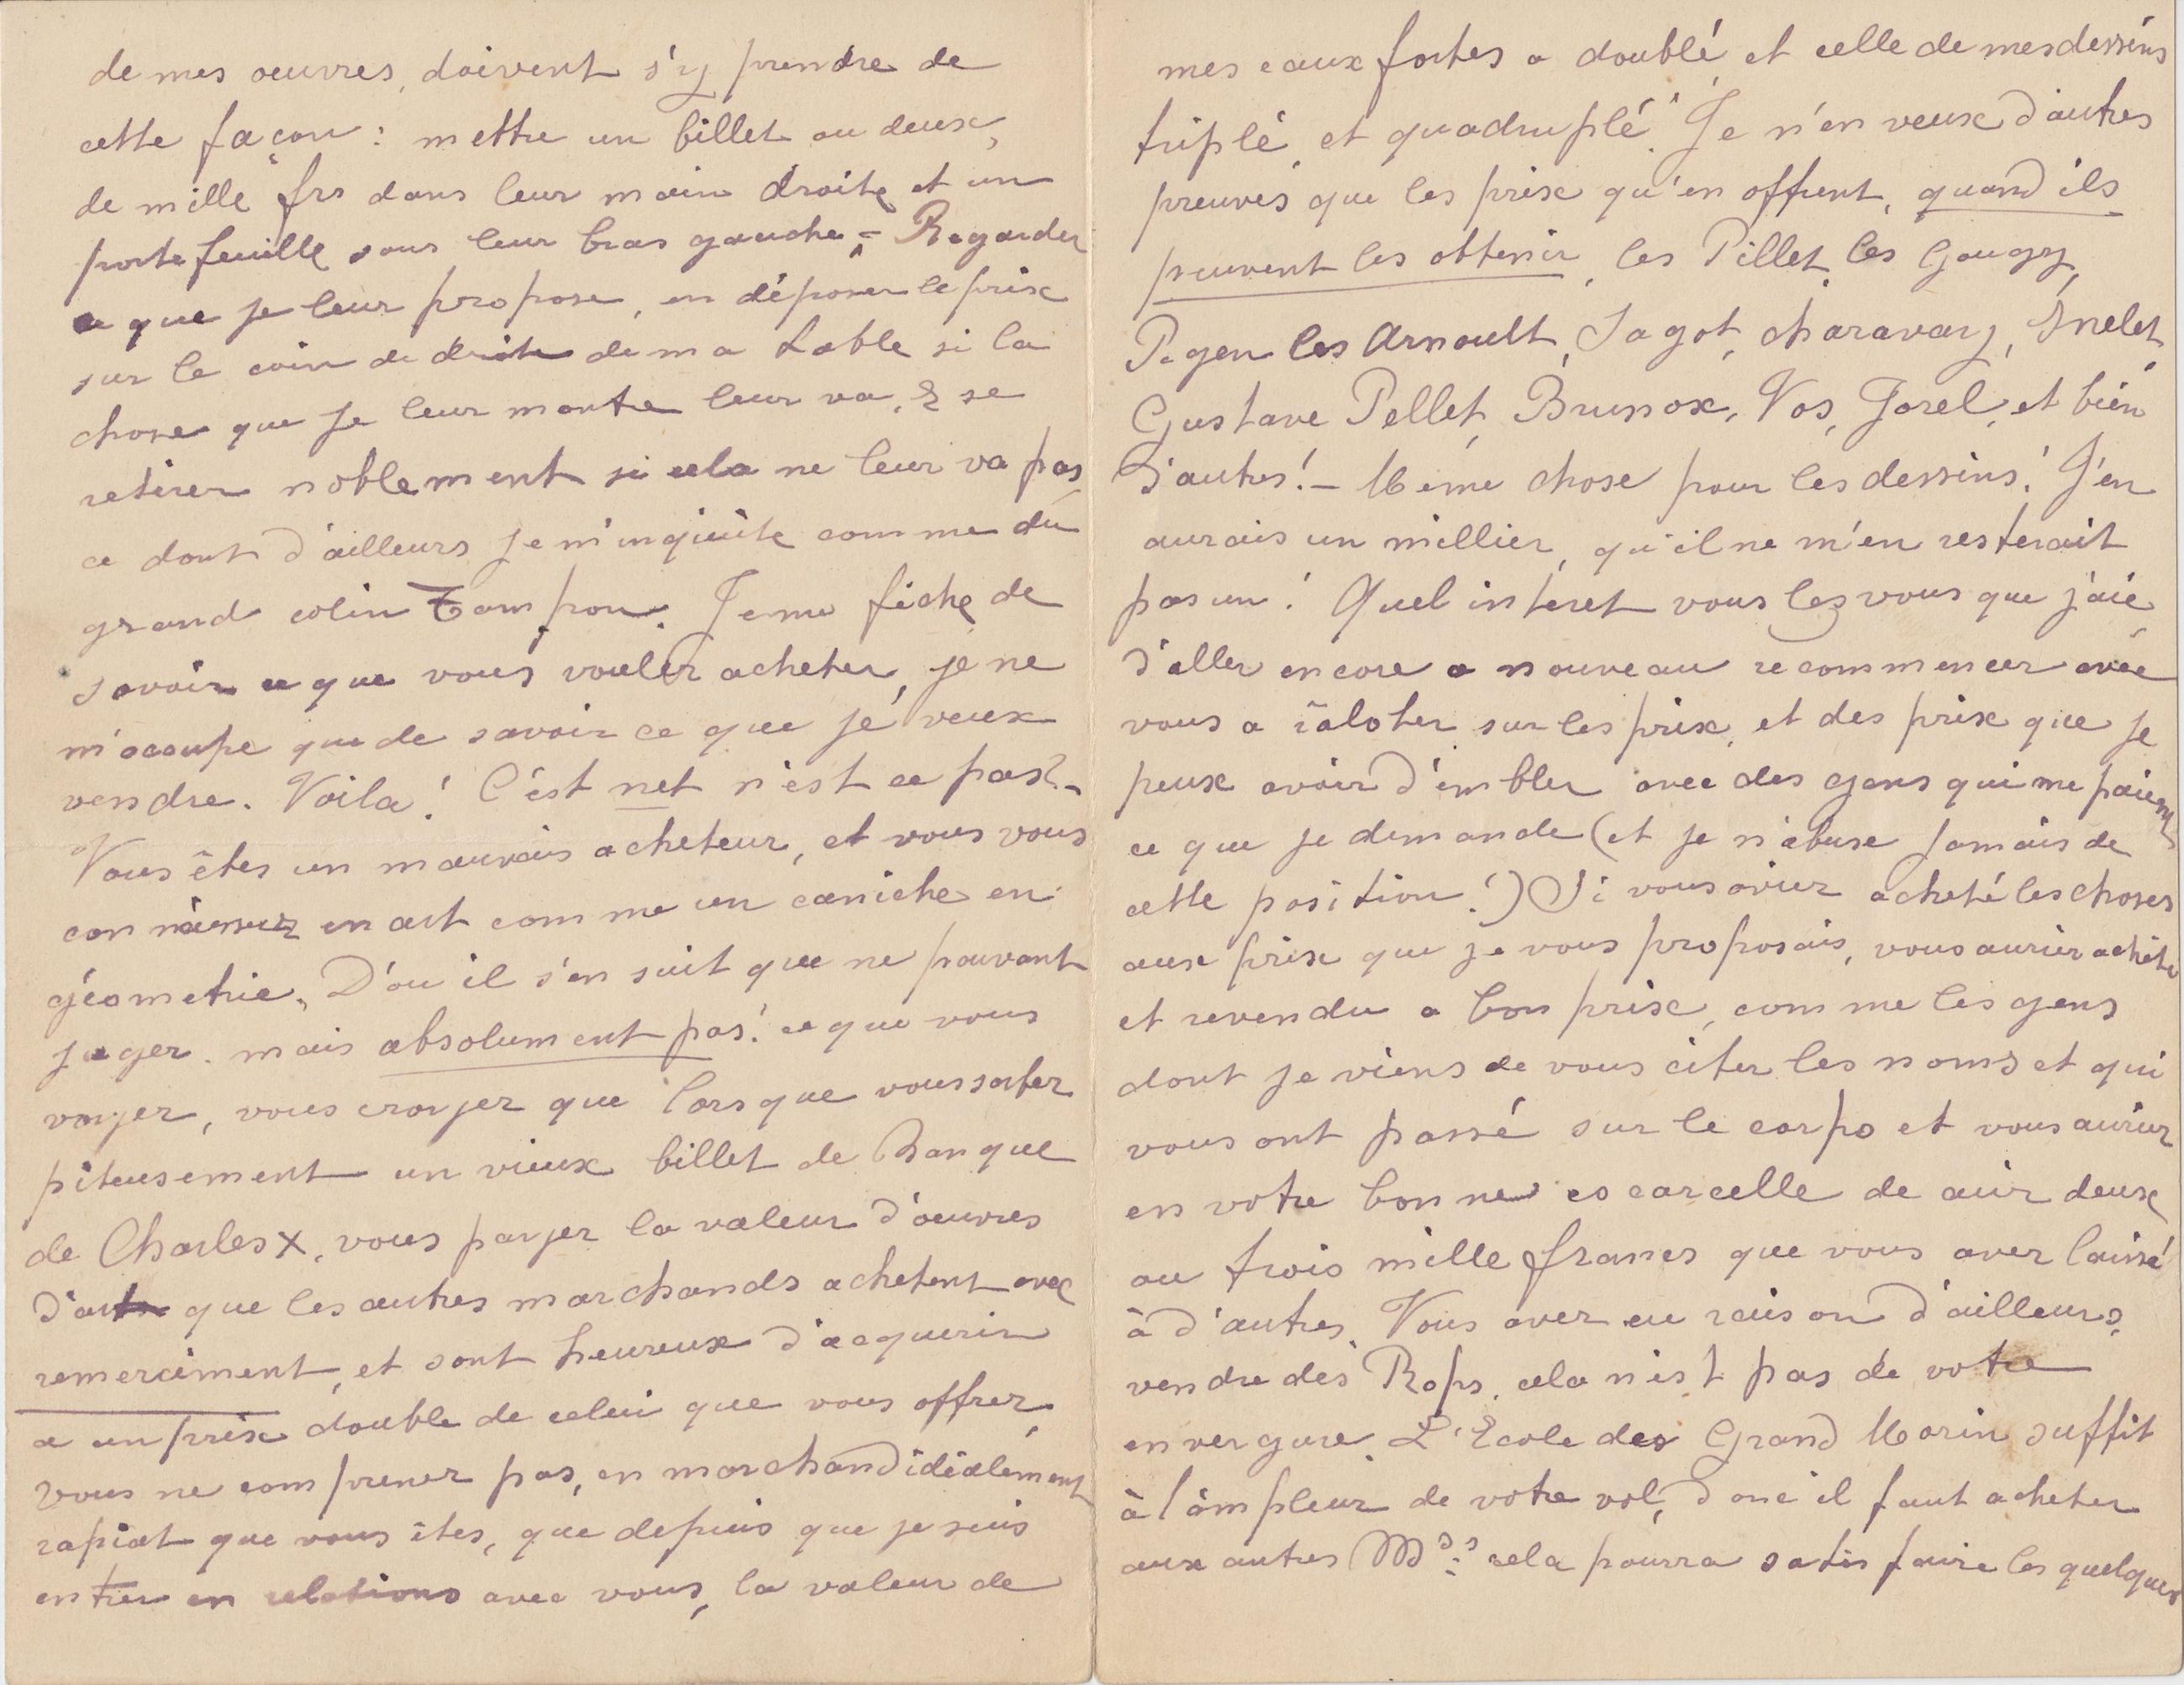 de mes oeuvres, doivent s'y prendre de
cette façon : mettre un billet ou deux,
de mille frs dans leur main droite et un
portefeuille sous leur bras gauche = Regarder
ce que je leur propose, en déposer le prix
sur le coin de droite de ma table si la
chose que je leur montre leur va, & se
retirer noblement si cela ne leur va pas,
ce dont d'ailleurs je m'inquiète comme du
grand colin Tampon. Je me fiche de
savoir ce que vous voulez acheter, je ne
m'occupe que de savoir ce que je veux
vendre. Voila! C'est net n'est ce pas? -
Vous êtes un mauvais acheteur, et vous vous
connaissez en art comme un caniche en
géometrie. D'où il s'en suit que ne pouvant
juger. mais absolument pas! ce que vous
voyez, vous croyez que lorsque vous sortez
piteusement un vieux billet de Banque
de Charles X, vous payez la valeur d'oeuvres
d'art que les autres marchands achetent avec
remerciment, et sont heureux d'acquerir
a un prix double de celui que vous offrez,
Vous ne comprenez pas, en marchand idéalement
rapiat que vous êtes, que depuis que je suis
entrer en relations avec vous, la valeur de
mes eaux fortes a doublé, et celle de mes dessins
triplé et quadruplé. Je n'en veux d'autres
preuves que les prix qu'en offrent, quand ils
peuvent les obtenir, les Pillet, les Gougy,
Pagen les Arnoult, Sagot, charavay, Snelet,
Gustave Pellet, Brunox, Vos, Jorel, et bien
d'autres! - Même chose pour les dessins! J'en
aurais un millier, qu'il ne m'en resterait
pas un! Quel interet voulez vous que j'aie
d'aller encore a nouveau recommencer avec
vous a raloter sur les prix, et des prix que je
peux avoir d'embler avec des gens qui me paient
ce que je demande (et je n'abuse jamais de
cette position!) Si vous aviez acheté les choses
aux prix que je vous proposais, vous auriez acheté
et revendu a bon prix, comme les gens
dont je viens de vous citer les noms et qui
vous ont passé sur le corps et vous auriez
en votre bonne escarcelle de cuir deux
ou trois mille francs que vous avez laissé
à d'autres. Vous avez eu raison d'ailleurs,
vendre des Rops, cela n'est pas de votre
envergure. L'Ecole des Grand Morin suffit
à l'ampleur de votre vol, donc il faut acheter
aux autres Mds: cela pourra satisfaire les quelques